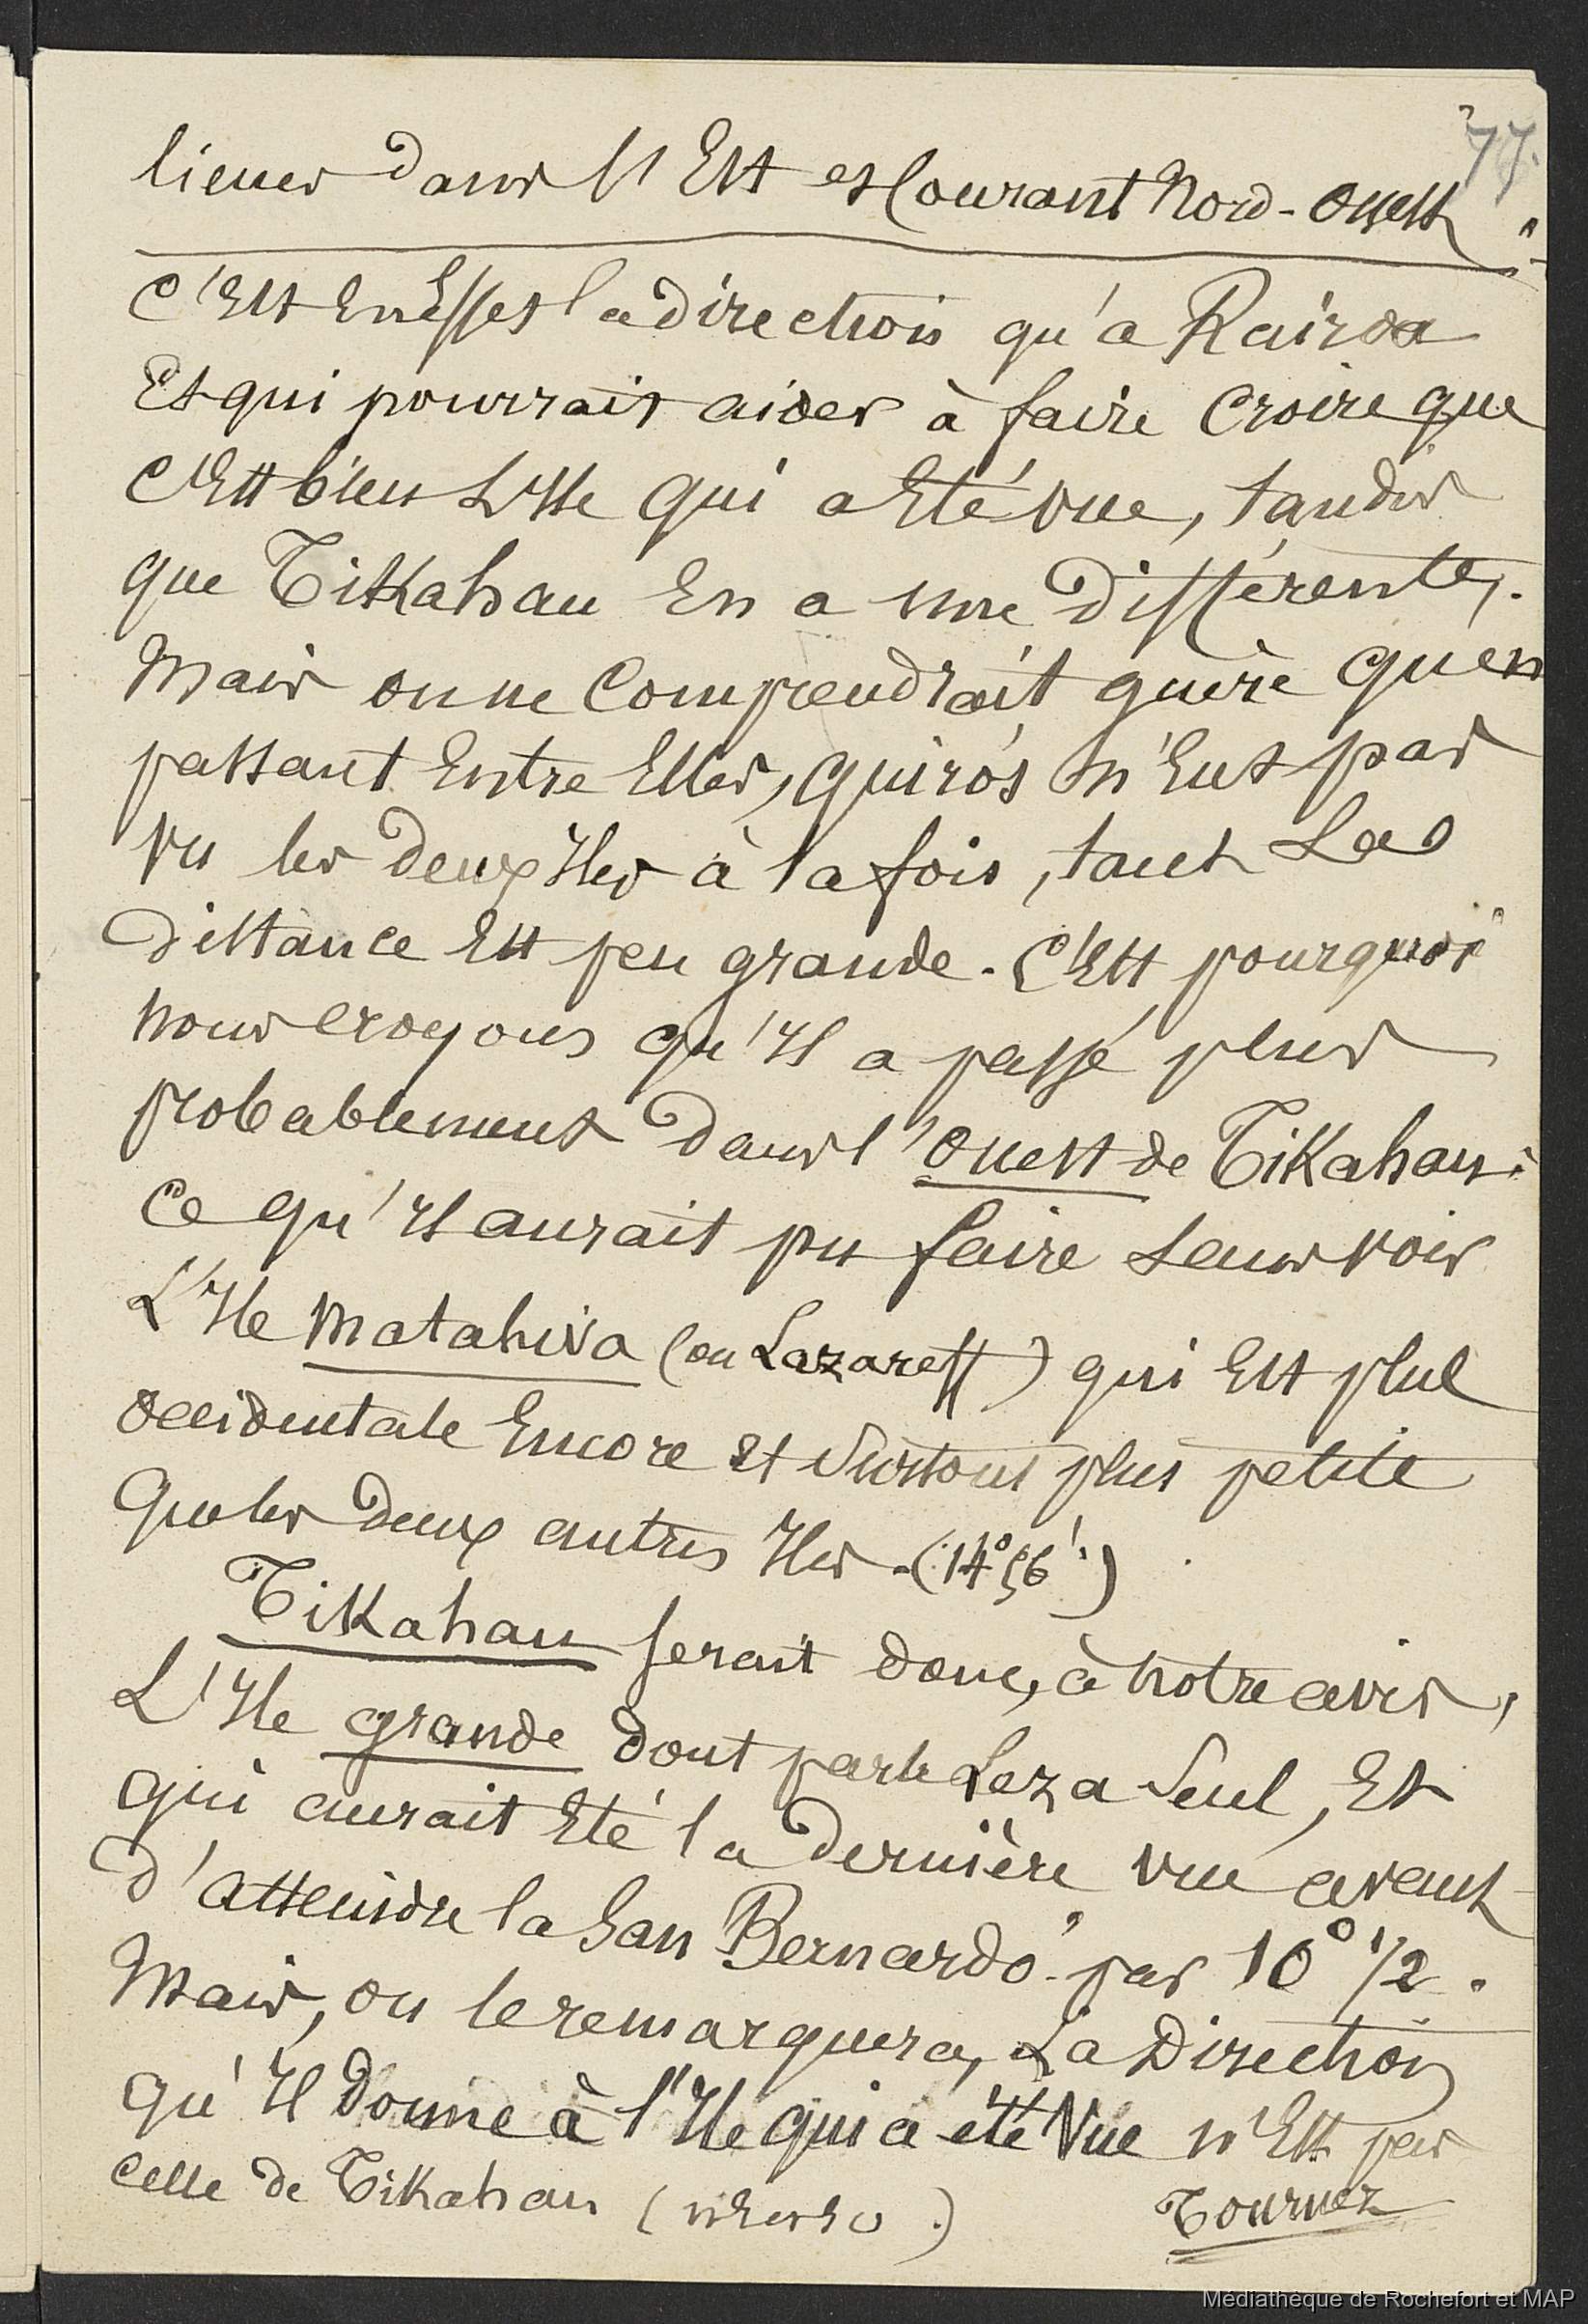 77.
lieues dans l'Est et courant Nord-Ouest."
C'Est En Effet la direction qu'a Rairoa
Et qui pourrait aider à faire croire que
C'Est bien L'Ile qui a Eté vue, tandis
que Tikahau En a une différente.
Mais on ne comprendrait guère qu'en
passant Entre Elles, Quiros n'Eut pas
vu les deux Iles à la fois, tant La
distance Est peu grande. C'Est pourquoi
nous croyons qu'Il a passé plus
probablement dans l'Ouest de Tikahau:
Ce qu'Il aurait pu faire sans voir
L'Ile Matahiva (ou Lazareff) qui Est plus
occidentale Encore et surtout plus petite
Que les deux autres Iles. (14° 56'.)
Tikahau serait donc, à notre avis,
L'Ile grande dont parle Leza seul, Et
qui aurait Eté la dernière vue avant
d'atteindre la San Bernardo par 10° 1/2.
Mais, on le remarquera, La Direction
qu'Il donne à l'Ile qui a été vue n'Est pas
celle de Tikahau
Tournez
Médiathèque de Rochefort et MAP